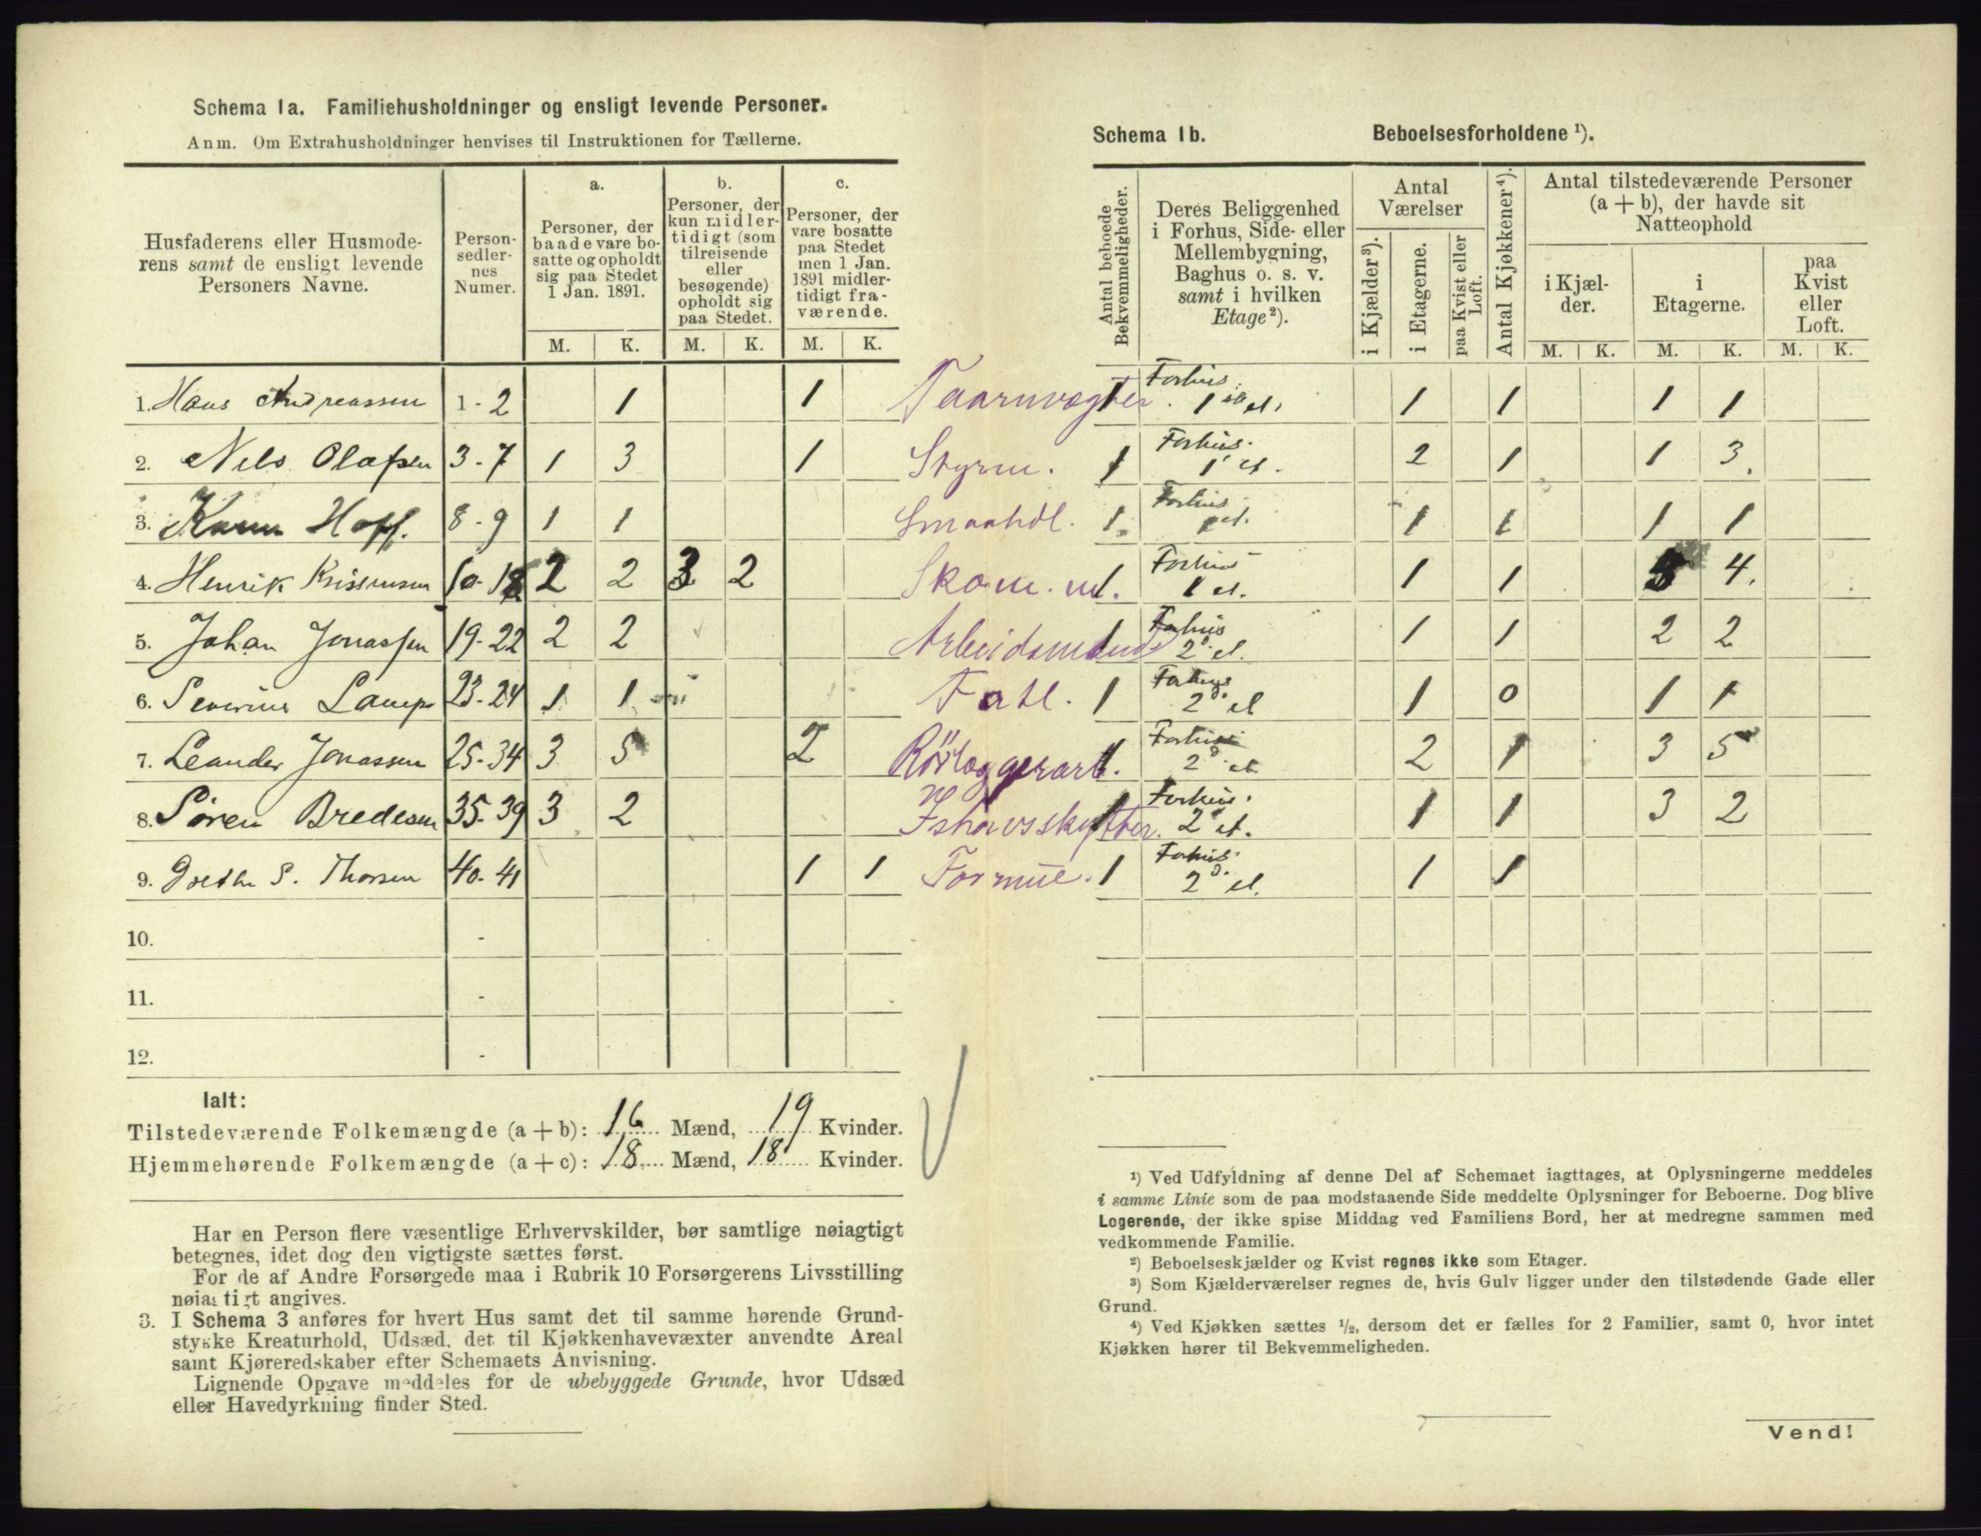 Schema 1a. Familiehusholdninger og ensligt levende Personer.
Anm. Om Extrahusholdninger henvises til Instruktionen for Tællerne.
Husfaderens eller Husmoderens samt de ensligt levende Personers Navne.
Person-sedler-nes Numer.
a. Personer, der baade vare bosatte og opholdt sig paa Stedet 1 Jan. 1891.
b. Personer, der kun midlertidigt (som tilreisende eller besøgende) opholdt sig paa Stedet.
c. Personer, der vare bosatte paa Stedet men 1 Jan. 1891 midlertidigt fraværende.
M. K. M. K. M. K.
1. Hans Andreassen 1-2 1 1 Taarnvogter
2. Nils Olafsen 3-7 1 3 1 Styrm.
3. Karen Hoff. 8-9 1 1 Smaahdl.
4. Henrik Kristensen 10-18 2 2 3 2 Skom. m.
5. Johan Jonassen 19-22 2 2 Arbeidsmand
6. Severine Lamp 23-24 1 1 Fatl.
7. Leander Jonassen 25-34 3 5 2 Rörlæggerarb.
8. Sören Bredesen 35-39 3 2 Ishavsskytter.
9. Grethe S. Thorsen 40-41 1 1 Formue.
10. -
11. -
12. -
Ialt:
Tilstedeværende Folkemængde (a+b): 16 Mænd, 19 Kvinder.
Hjemmehørende Folkemængde (a+c): 18 Mænd, 18 Kvinder.
Har en Person flere væsentlige Erhvervskilder, bør samtlige nøiagtigt
betegnes, idet dog den vigtigste sættes først.
For de af Andre Forsørgede maa i Rubrik 10 Forsørgerens Livsstilling
nøiagtigt angives.
3. I Schema 3 anføres for hvert Hus samt det til samme hørende Grund-
stykke Kreaturhold, Udsæd, det til Kjøkkenhavevæxter anvendte Areal
samt Kjøreredskaber efter Schemaets Anvisning.
Lignende Opgave meddeles for de ubebyggede Grunde, hvor Udsæd
eller Havedyrkning finder Sted.
Schema 1b. Beboelsesforholdene ¹).
Antal beboede Bekvemmeligheder.
Deres Beliggenhed i Forhus, Side- eller Mellembygning, Baghus o. s. v. samt i hvilken Etage²).
Antal Værelser
i Kjælder³).
i Etagerne.
paa Kvist eller Loft.
Antal Kjøkkener⁴).
Antal tilstedeværende Personer (a + b), der havde sit Natteophold
i Kjælder.
i Etagerne.
paa Kvist eller Loft.
M. K. M. K. M. K.
1 Forhus. 1ste et. 1 1 1 1
1 Forhus. 1 et. 2 1 1 3.
1 Forhus 1 et. 1 1 1 1
1 Forhus 1 et. 1 1 5 4.
1 Forhus 2d. et. 1 1 2 2
1 Forhus 2d. et 1 0 1 1
1 Forhus 2d. et. 2 1 3 5
1 Forhus. 2d et. 1 1 3 2
1 Forhus. 2d. et. 1 1
¹) Ved Udfyldning af denne Del af Schemaet iagttages, at Oplysningerne meddeles
i samme Linie som de paa modstaaende Side meddelte Oplysninger for Beboerne. Dog blive
Logerende, der ikke spise Middag ved Familiens Bord, her at medregne sammen med
vedkommende Familie.
²) Beboelseskjælder og Kvist regnes ikke som Etager.
³) Som Kjælderværelser regnes de, hvis Gulv ligger under den tilstødende Gade eller
Grund.
⁴) Ved Kjøkken sættes ½, dersom det er fælles for 2 Familier, samt 0, hvor intet
Kjøkken hører til Bekvemmeligheden.
Vend!